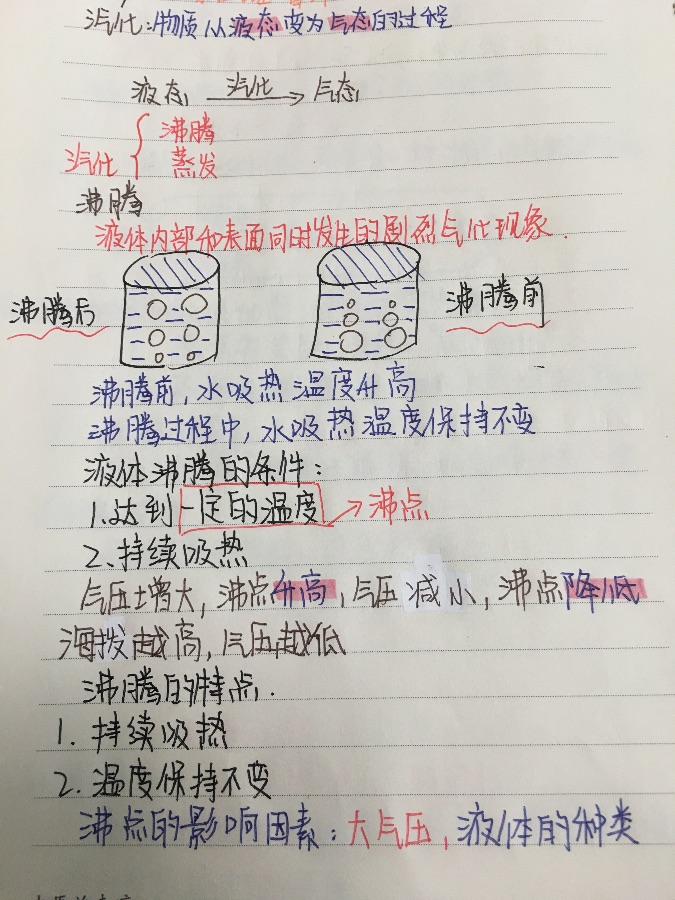 汽化:物质从液态变为气态的过程
液态 汽化 气态
汽化 沸腾
蒸发
沸腾
液体内部和表面同时发生的剧烈气化现象.
沸腾后 沸腾前
沸腾前,水吸热温度升高
沸腾过程中,水吸热温度保持不变
液体沸腾的条件:
1.达到一定的温度→沸点
2.持续吸热
气压增大,沸点升高,气压减小,沸点降低
海拔越高,气压越低
沸腾的特点.
1.持续吸热
2.温度保持不变
沸点的影响因素:大气压,液体的种类